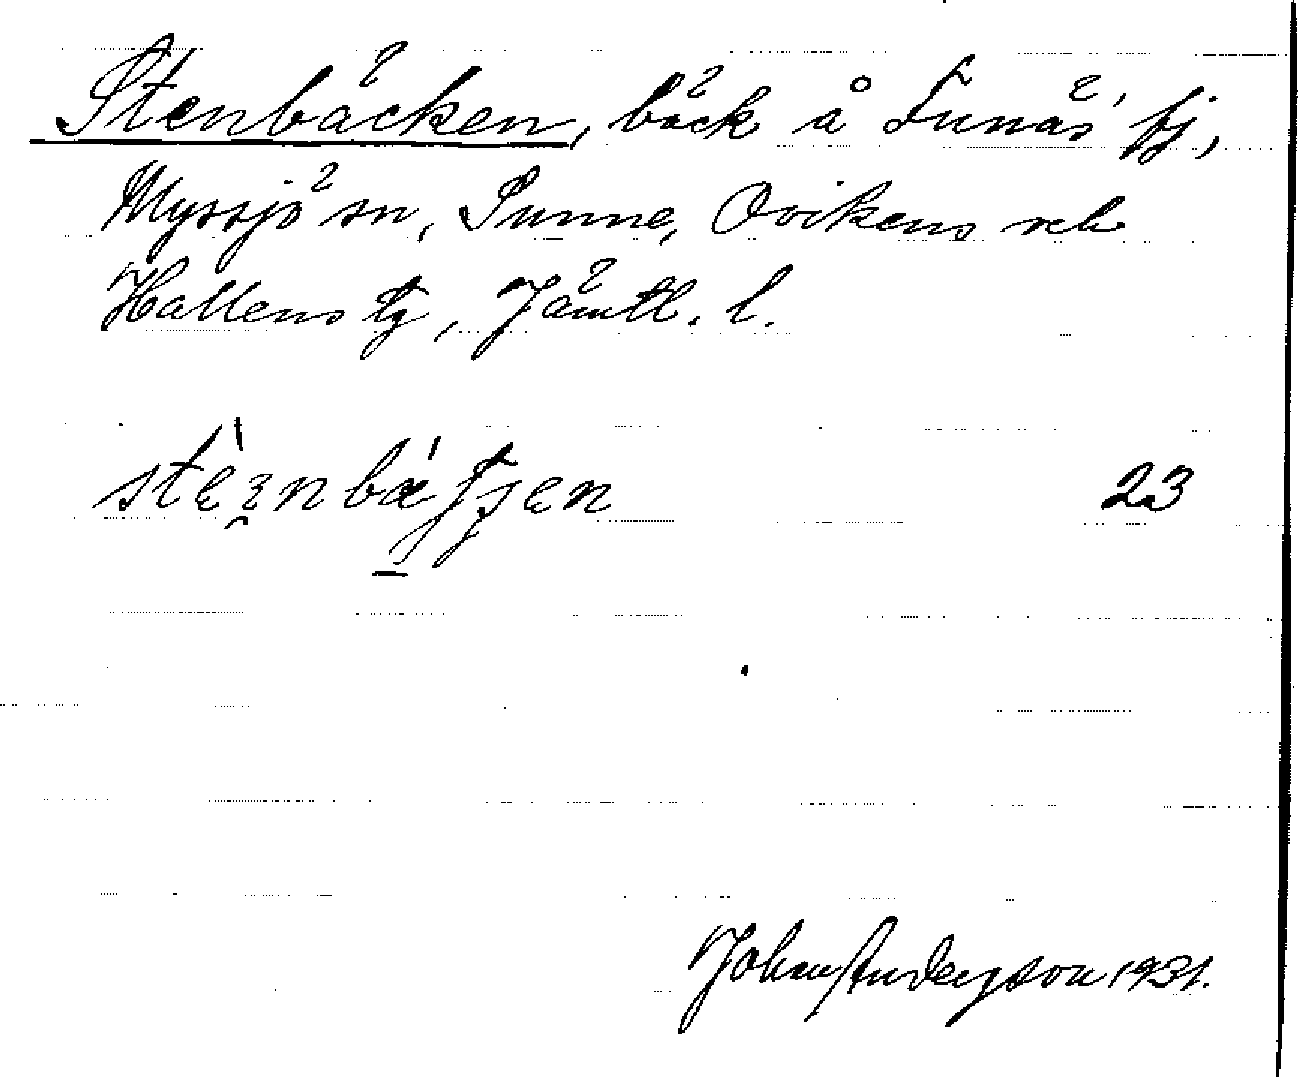 Stenbäcken, bäck å Funäs' fj,
Myssjö sn, Sunne, Ovikens och
Hallens tg, Jämtl. l.
23
John Andersson 1931.